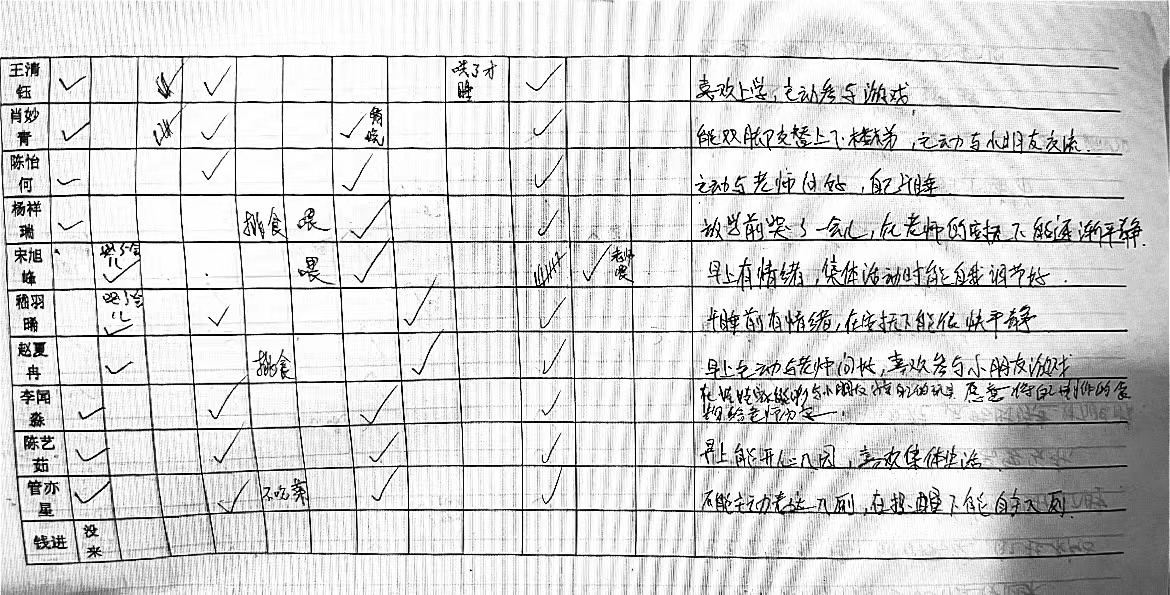 王清钰 ✓ ✓ 哄了才睡 ✓ 喜欢上学，主动参与游戏
肖妙青 ✓ ✓ ✓ ✓ 能双脚交替上下楼梯，主动与小朋友交流.
陈怡何 ✓ ✓ ✓ ✓ 主动与老师问好，自己午睡
杨祥瑞 ✓ 挑食 喂 ✓ ✓ 放学前哭了一会儿，在老师的安抚下能逐渐平静.
宋旭峰 哭了会儿 ✓ 喂 ✓ 老师喂 早上有情绪，集体活动时能自我调节好.
嵇羽晞 哭了会儿 ✓ ✓ ✓ ✓ 午睡前有情绪，在安抚下能很快平静
赵夏冉 ✓ 挑食 ✓ ✓ 早上主动与老师问好，喜欢参与小朋友游戏
李闻淼 ✓ ✓ ✓ ✓ 愿意将自己制作的食物给老师分享.
陈艺茹 ✓ ✓ ✓ ✓ 早上能开心入园，喜欢集体生活
管亦星 ✓ ✓ 不吃菜 ✓ ✓ 不能主动入厕，在提醒下能自主入厕.
钱进 没来